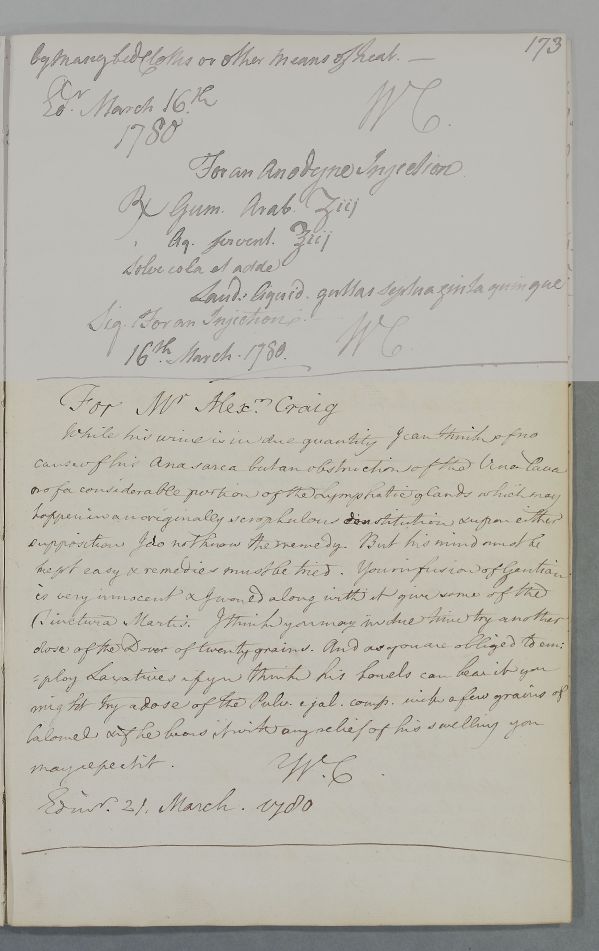 173
by many bed Cloths or other means of heat. —
Edr. March 16th
1780
W C.
For an Anodyne Injection
Rx Gum. Arab. ʒiij
Aq. fervent. ℥iij
Solve cola et adde
Laud. liquid. guttas septuaginta quinque
Sig. For an Injection.
W C.
16th March. 1780.
For Mr Alexr Craig
While his urine is in due quantity I can think of no
cause of his Anasarca but an obstruction of the Vena Cava
or of a considerable portion of the Lymphatic glands which may
happen in an originally scrophulous constitution & upon either
supposition I do not know the remedy. But his mind must be
kept easy & remedies must be tried. Your infusion of Gentian
is very innocent & I would along with it give some of the
Tinctura Martis. I think you may in due time try another
dose of the Dover of twenty grains. And as you are obliged to em:
:ploy Laxatives if you think his bowels can bear it you
might try a dose of the Pulv. e jal. comp. with a few grains of
Calomel & if he bears it with any relief of his swelling you
may repeat it.
W. C.
Edinr. 21. March. 1780